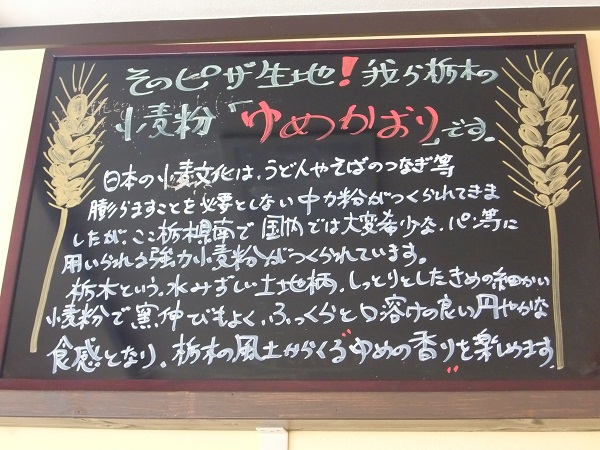 そのピザ生地！我ら栃木の
小麦粉「ゆめかおり」です。
日本の小麦文化は、うどんやそばのつなぎ等
膨らますことを必要としない中力粉がつくられてきま
したが、ここ栃木県南で国内では大変希少な、パン等に
用いられる強力小麦粉がつくられています。
栃木という、水みずしい土地柄、しっとりとしたきめの細かい
小麦粉で窯伸びもよく、ふっくらと口溶けの良い円やかな
食感となり、栃木の風土からくる“ゆめの香り”を楽しめます。